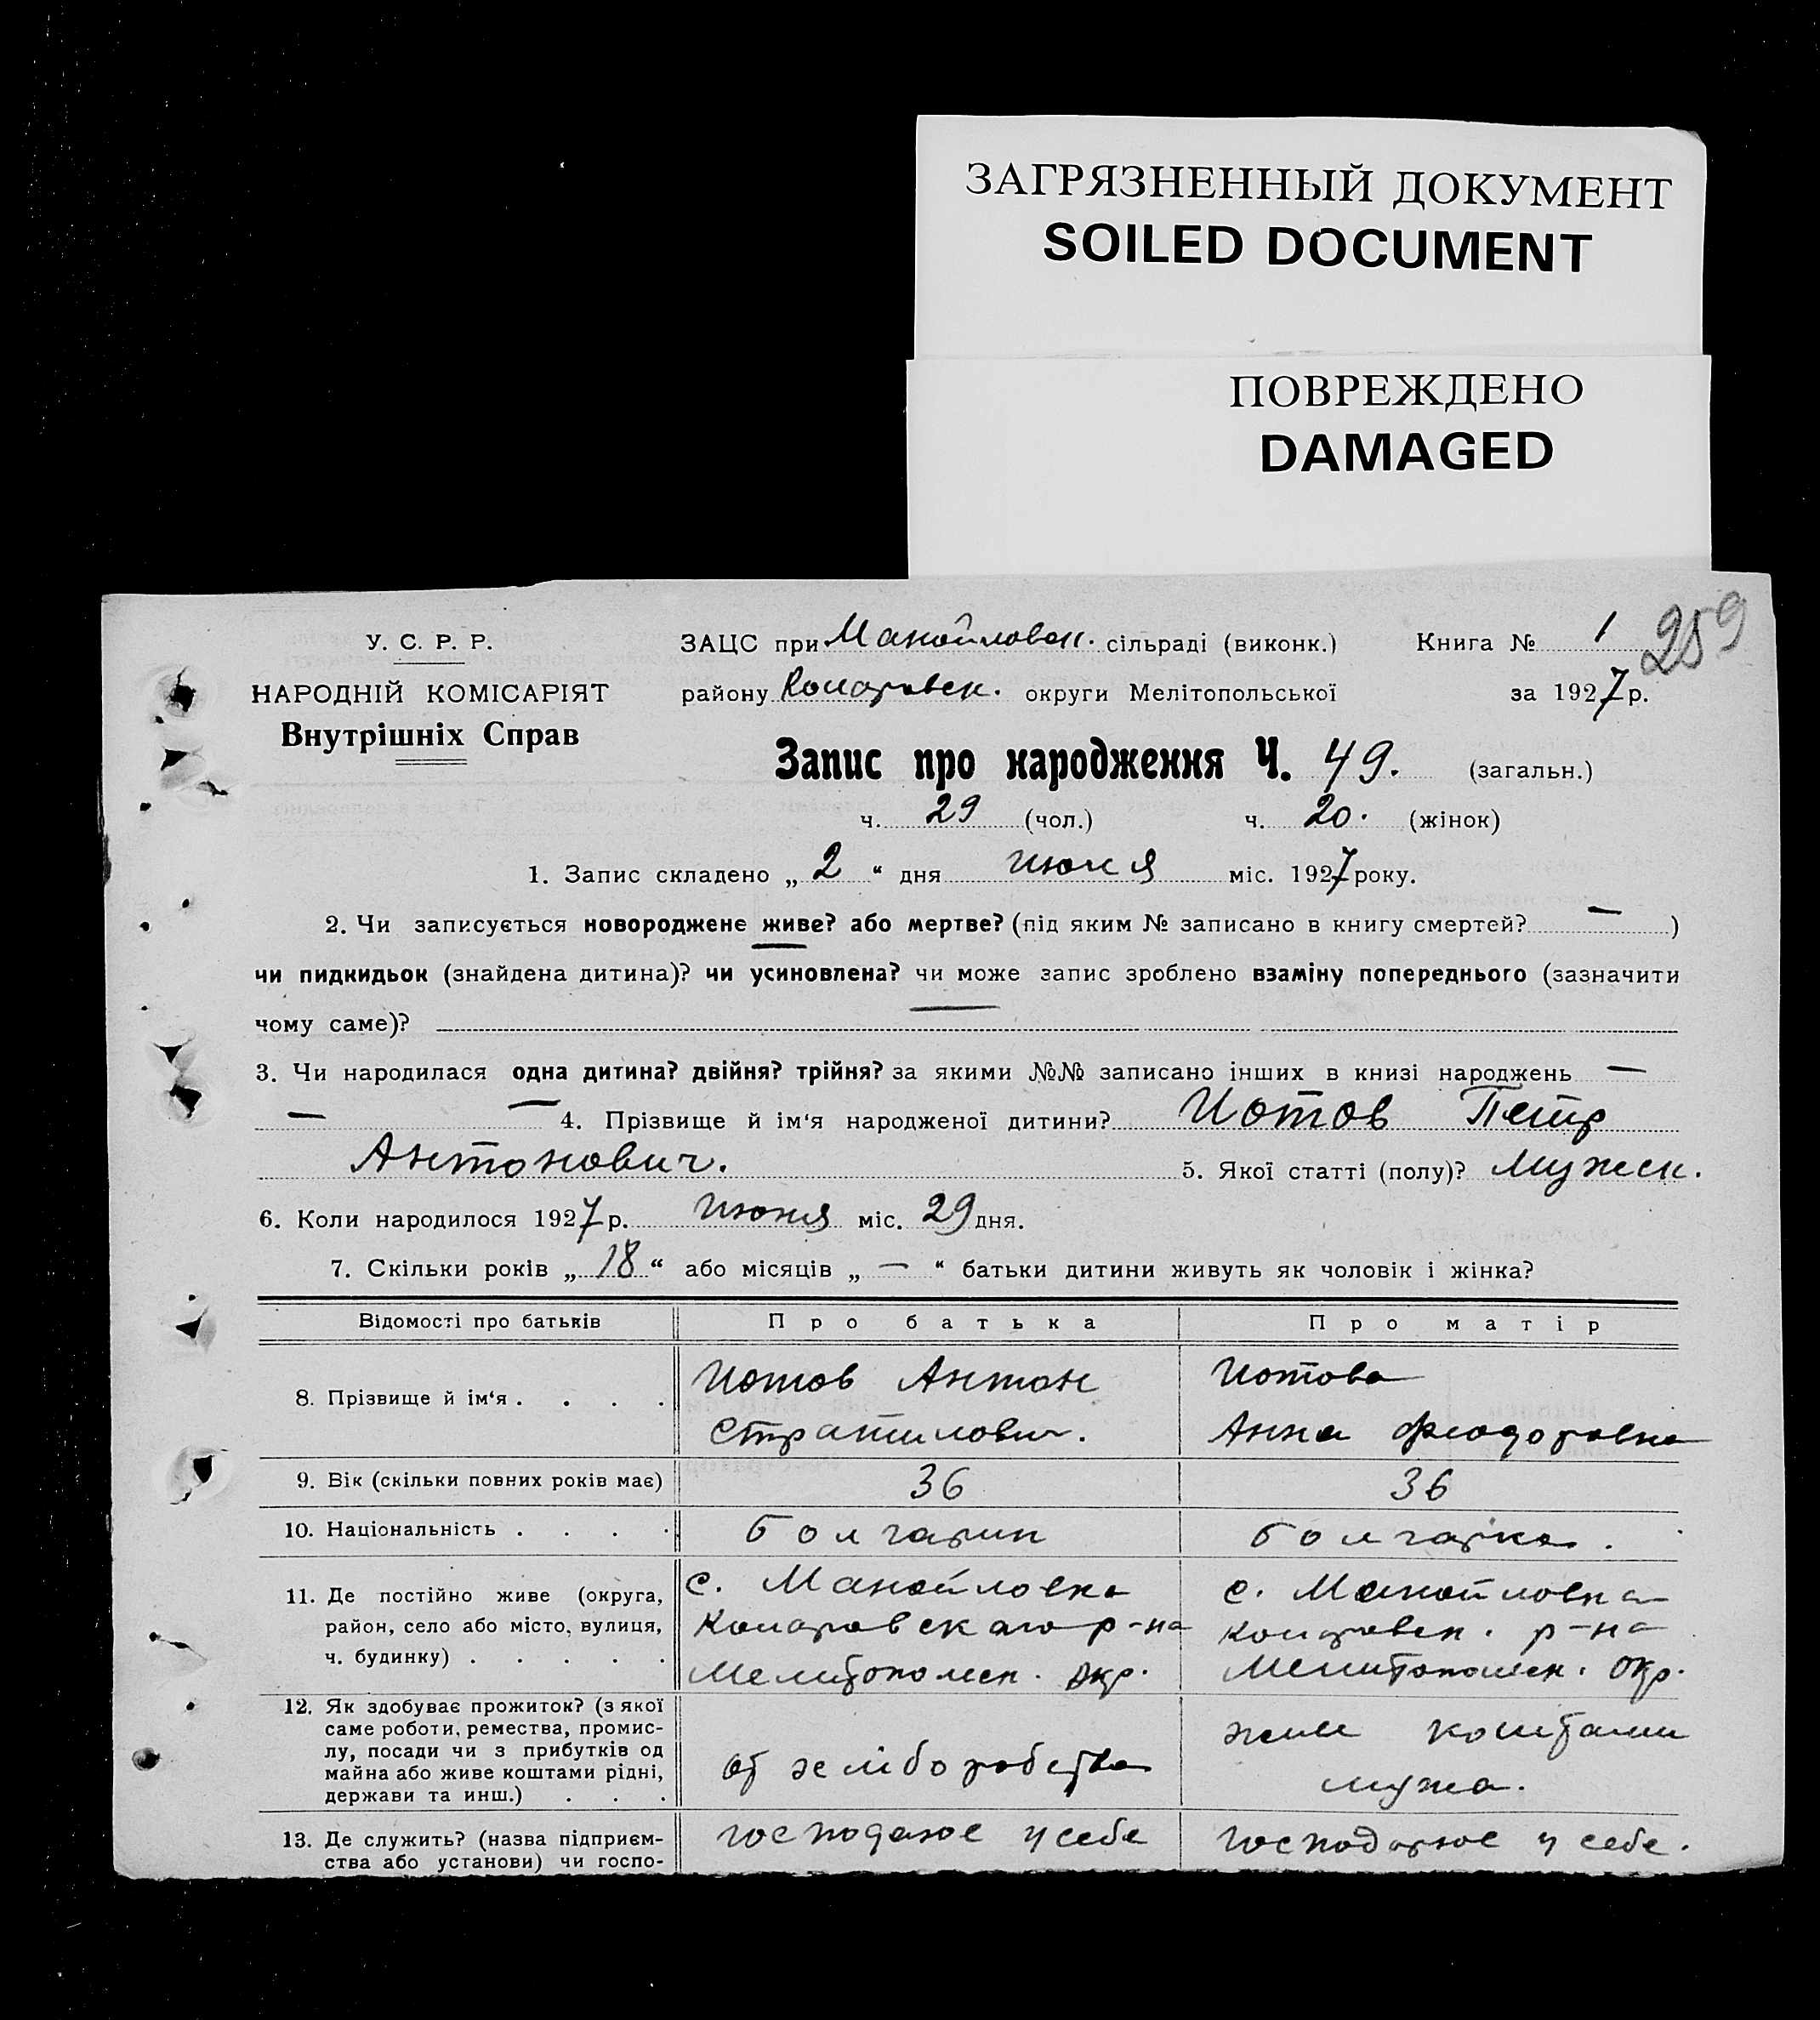 ЗАГРЯЗНЕННЫЙ ДОКУМЕНТ
SOILED DOCUMENT
ПОВРЕЖДЕНО
DAMAGED
У. С. Р. Р.
НАРОДНІЙ КОМІСАРІЯТ
Внутрішніх Справ
ЗАЦС при Манойловск. сільраді (виконк.)
Книга № 1
259
району Коларовск. округи Мелітопольської
за 1927 р.
Запис про народження Ч. 49. (загальн.)
ч. 29 (чол.) ч. 20. (жінок)
1. Запис складено „ 2 “ дня июля міс. 1927 року.
2. Чи записується новороджене живе? або мертве? (під яким № записано в книгу смертей? — )
чи пидкидьок (знайдена дитина)? чи усиновлена? чи може запис зроблено взаміну попереднього (зазначити
чому саме)? —
3. Чи народилася одна дитина? двійня? трійня? за якими №№ записано інших в книзі народжень —
— — 4. Прізвище й ім‘я народженої дитини? Иотов Петр
Антонович. 5. Якої статті (полу)? Мужск.
6. Коли народилося 1927 р. июня міс. 29 дня.
7. Скільки років „ 18 “ або місяців „ — “ батьки дитини живуть як чоловік і жінка?
Відомості про батьків Про батька Про матір
8. Прізвище й ім‘я . . . .
Иотов Антон
Стратилович.
Иотова
Анна Феодоровна
9. Вік (скільки повних років має) 36 36
10. Національність . . . . болгарин болгарка.
11. Де постійно живе (округа,
район, село або місто, вулиця,
ч. будинку) . . . . .
с. Манойловка
Коларовского р-на
Мелитополск. окр.
с. Манойловка
Коларовск. р-на
Мелитополск. окр.
12. Як здобуває прожиток? (з якої
саме роботи, ремества, промис-
лу, посади чи з прибутків од
майна або живе коштами рідні,
держави та инш.) . . .
от хліборобства
живе коштами
мужа.
13. Де служить? (назва підприєм-
ства або установи) чи госпо-
господарює у себе
господарює у себе.